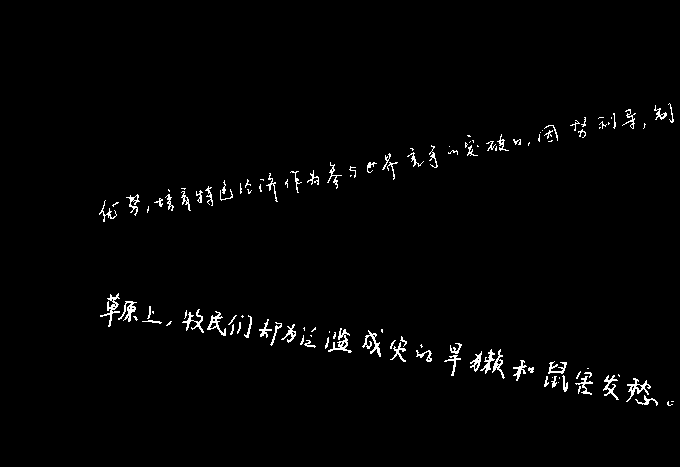 优势，培育特色经济作为参与世界竞争的突破口，因势利导，制
草原上，牧民们却为泛滥成灾的旱獭和鼠害发愁。